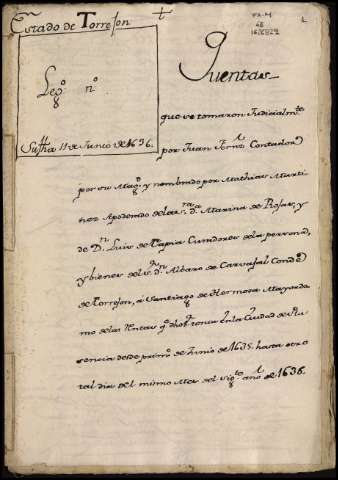 Estado de Torrejon
Leg.º n.º
Su fha 11 de Junio de 1636.
Quentas
que se tomaron Judicialm.te
por Juan Fern.z Contador
por su Mag.d y nombrado por Mathias Marti
nez Apoderado de la s.ra d.a Marina de Rojas, y
de D.n Luis de Tapia Curador de la persona,
y bienes del s.r d.n Albaro de Carvajal Conde
de Torrejon, a Santiago de Hermosa Mayordo
mo de las Rentas q.e dho s.r tenia en la Ciudad de Pla
sencia desde prim.ro de Junio de 1635. hasta otro
tal dia del mismo Mes del sig.te año de 1636.